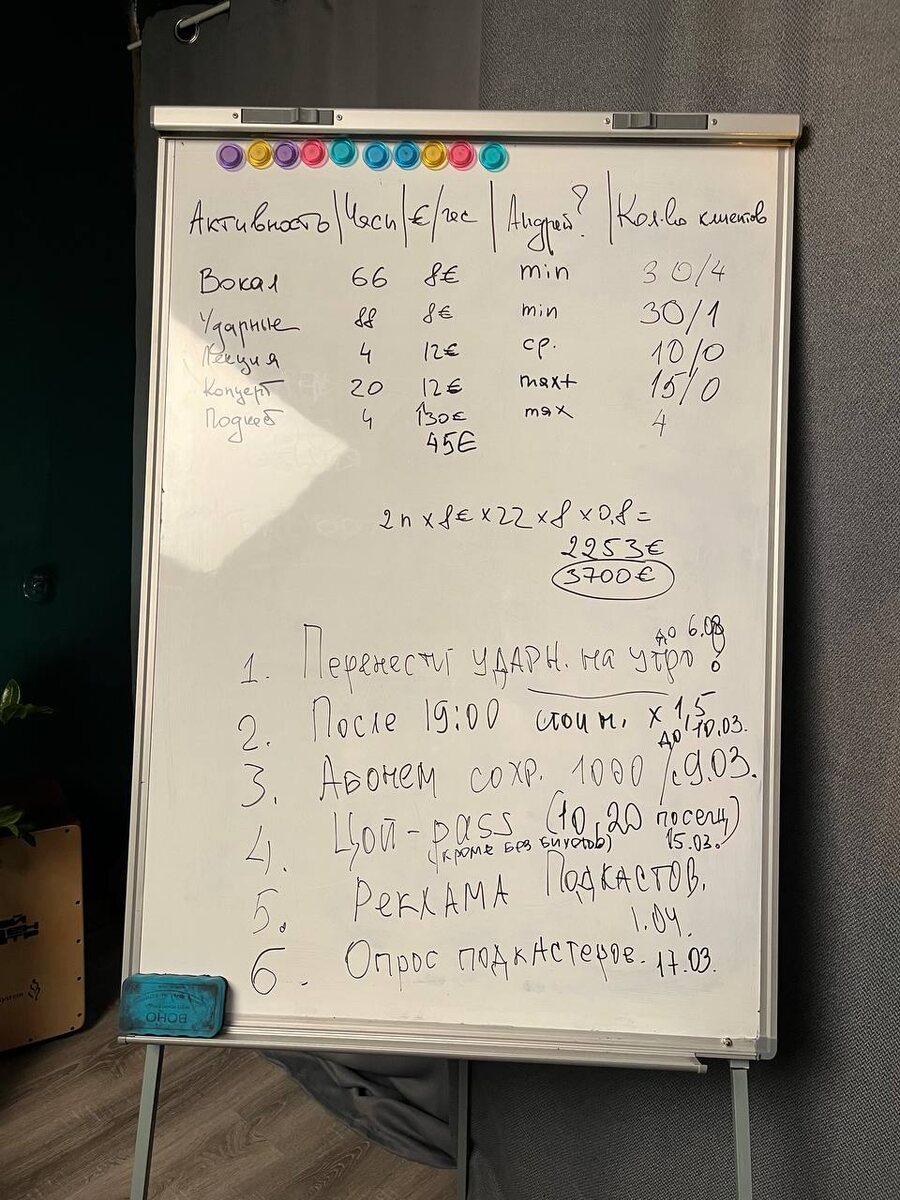 Активность | Часы | €/час | Андрей? | Кол-во клиентов
Вокал 66 8€ min 30/4
Ударные 88 8€ min 30/1
Лекция 4 12€ ср. 10/0
Концерт 20 12€ max+ 15/0
Подкаст 4 130€ max 4
45€
2п x 8€ x 22 x 8 x 0,8 =
2253€
3700€
до 6.03
1. Перенести ударн. на утро!
2. После 19:00 стоим. x 1,5
до 10.03.
3. Абонем сохр. 1000 / с 9.03.
4. Цой-pass (10, 20 посещ)
(кроме без билетов) 15.03.
5. Реклама Подкастов.
1.04.
6. Опрос подкастеров. 17.03.
BOHO